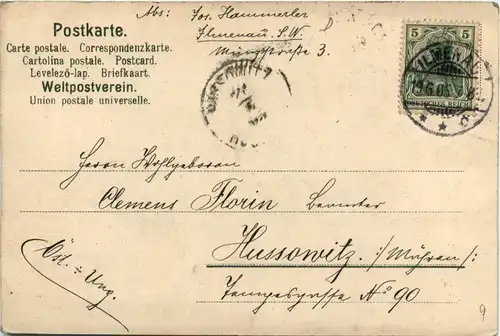 Postkarte.
Carte postale. Correspondenzkarte.
Cartolina postale. Postcard.
Levelező-lap. Briefkaart.
Weltpostverein.
Union postale universelle.
Abs: Jos. Hammerler
Ilmenau S.W.
3.
5 5
ILMENAU
DEUTSCHES REICH
HUSSOWITZ
Herrn Wohlgeboren
Clemens Florin Beamter
Hussowitz. /: Mähren /:
Tempesgasse No 90
Öst. ÷ Ung.
9